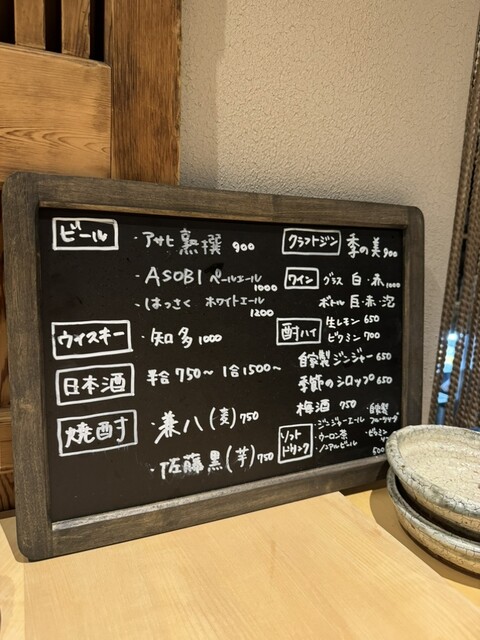 ビール
・アサヒ 熟撰 900
・ASOBI ペールエール 1000
・はっさく ホワイトエール 1200
ウィスキー
・知多 1000
日本酒
半合 750〜 1合 1500〜
焼酎
・兼八(麦) 750
・佐藤 黒(芋) 750
クラフトジン
季の美 900
ワイン
グラス 白・赤 1000
ボトル 白・赤・泡
酎ハイ
生レモン 650
ビタミン 700
自家製ジンジャー 650
季節のシロップ 650
梅酒 750
ソフトドリンク
・ジンジャーエール
・ウーロン茶
・ノンアルビール
・自家製
・ビタミン
600